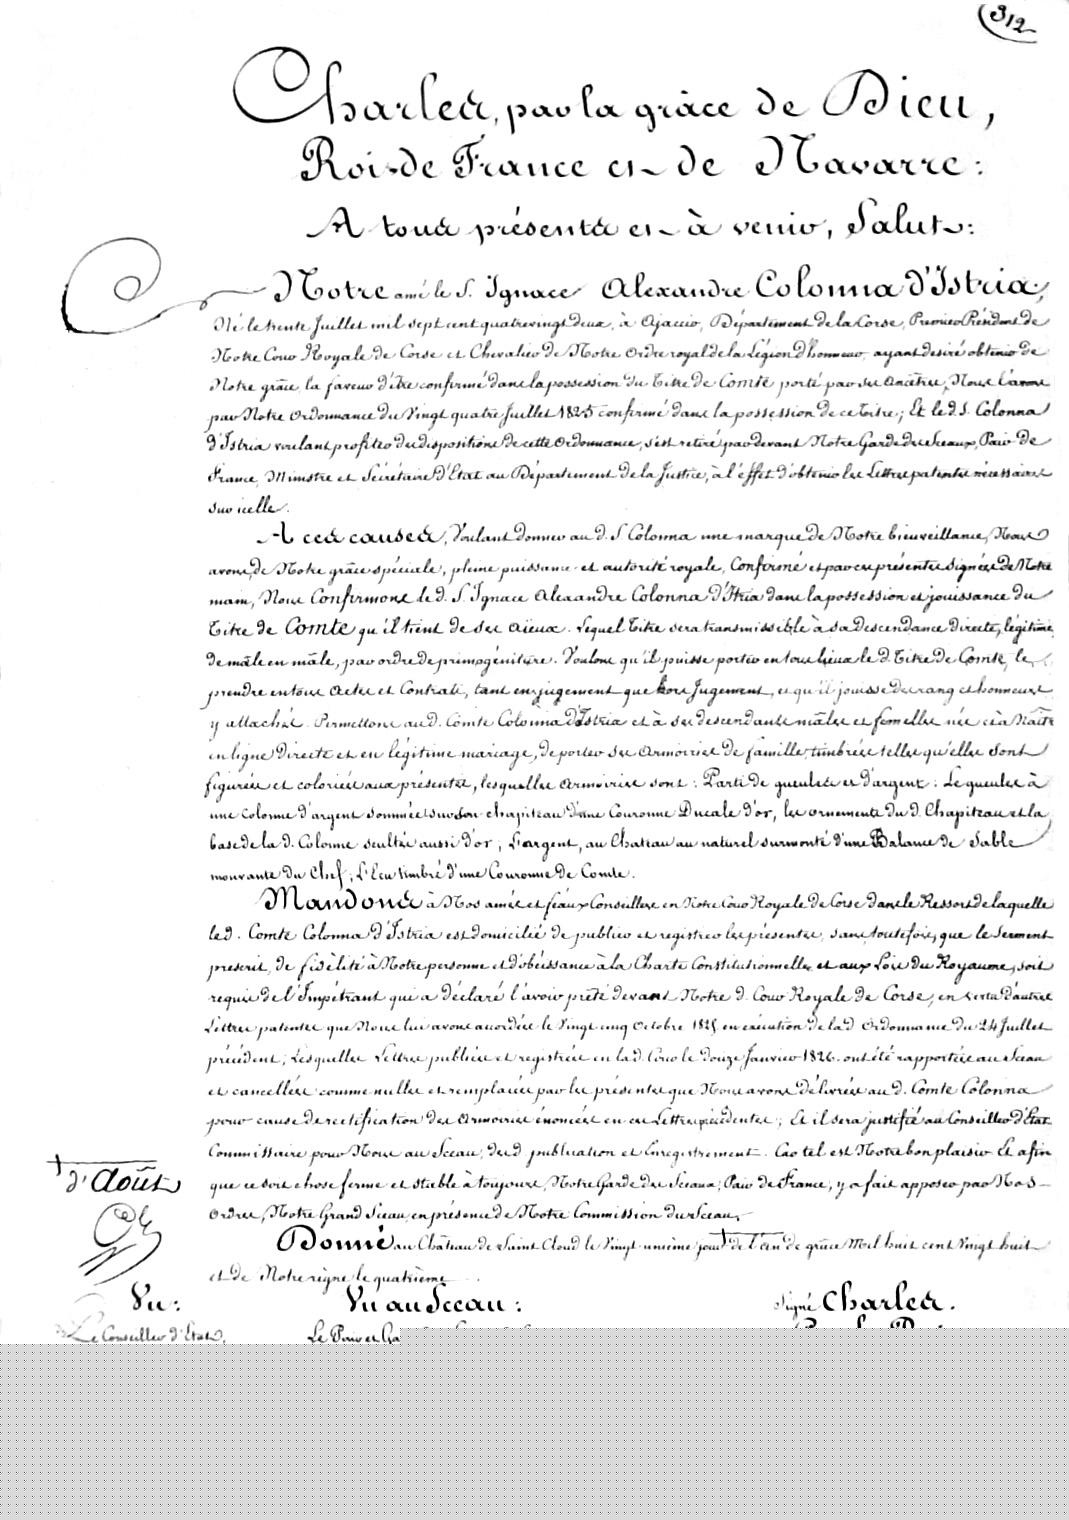 (312
Charles, par la grâce de Dieu,
Roi de France et de Navarre :
A tous présents et à venir, Salut :
Notre amé le S. Ignace Alexandre Colonna d'Istria,
Né le trente Juillet mil sept cent quatrevingt deux, à Ajaccio, Département de la Corse, Premier Président de
Notre Cour Royale de Corse et Chevalier de Notre Ordre royal de la Légion d'honneur, ayant desiré obtenir de
Notre grâce, la faveur d'être confirmé dans la possession du Titre de Comte porté par ses Ancêtres, Nous l'avons
par Notre Ordonnance du Vingt quatre Juillet 1825 confirmé dans la possession de ce Titre ; Et le d. S. Colonna
d'Istria voulant profiter des dispositions de cette Ordonnance, s'est retiré pardevant Notre Garde des Sceaux, Pair de
France, Ministre et Sécrétaire d'Etat au Département de la Justice, à l'effet d'obtenir les Lettres patentes nécessaires
sur icelle.
A ces causes, Voulant donner au d. S Colonna une marque de Notre bienveillance, Nous
avons, de Notre grâce spéciale, pleine puissance et autorité royale, Confirmé et par ces présentes signées de Notre
main, Nous Confirmons le d. S. Ignace Alexandre Colonna d'Istria dans la possession et jouissance du
Titre de Comte qu'il tient de ses aïeux. Lequel Titre sera transmissible à sa descendance directe, légitime
de mâle en mâle, par ordre de primogéniture. Voulons qu'il puisse porter en tous lieux le d. Titre de Comte, le
prendre en tous Actes et Contrats, tant en jugement que hors Jugement, et qu'il jouisse des rang et honneurs
y attachés. Permettons au d. Comte Colonna d'Istria et à ses descendants mâles et femelles nés et à Naître
en ligne directe et en légitime mariage, de porter ses Armoiries de famille timbrées telles qu'elles sont
figurées et coloriées aux présentes, lesquelles Armoiries sont : Parti de gueules et d'argent : Le gueules à
une colonne d'argent sommée sur son chapiteau d'une Couronne Ducale d'or, les ornements du d. Chapiteau et la
base de la d. Colonne scultés aussi d'or ; L'argent, au Chateau au naturel surmonté d'une Balance de Sable
mouvante du Chef ; L'Ecu timbré d'une Couronne de Comte.
Mandons à Nos amés et féaux Conseillers en Notre Cour Royale de Corse dans le Ressort de laquelle
le d. Comte Colonna d'Istria est domicilié de publier et registrer les présentes, sans toutefois, que le Serment
prescrit, de fidélité à Notre personne et d'obéissance à la Charte Constitutionnelle et aux Lois du Royaume, soit
requis de l'Impétrant qui a déclaré l'avoir prêté devant Notre d. Cour Royale de Corse, en vertu d'autres
Lettres patentes que Nous lui avons accordées le Vingt cinq Octobre 1825 en exécution de la d Ordonnance du 24 Juillet
précédent ; Lesquelles Lettres publiées et registrées en la d. Cour le douze Janvier 1826. ont été rapportées au Sceau
et cancellées comme nulles et remplacées par les présentes que Nous avons délivrées au d. Comte Colonna
pour cause de rectification des Armoiries énoncées en ces Lettres précédentes ; Et il sera justifié au Conseiller d'Etat
Commissaire pour Nous au Sceau, des d. publication et Enregistrement. Car tel est Notre bon plaisir Et afin
que ce soit chose ferme et stable à toujours, Notre Garde des Sceaux, Pair de France, y a fait apposer par Nos
Ordres, Notre Grand Sceau, en présence de Notre Commission du Sceau.
Donné au Château de Saint Cloud le Vingt-unième jour de l'an de grâce Mil huit cent Vingt huit
d'Août
et de Notre règne le quatrième
Vu :
Vu au Sceau :
Signé Charles.
Le Conseiller d'Etat,
Le Pair et